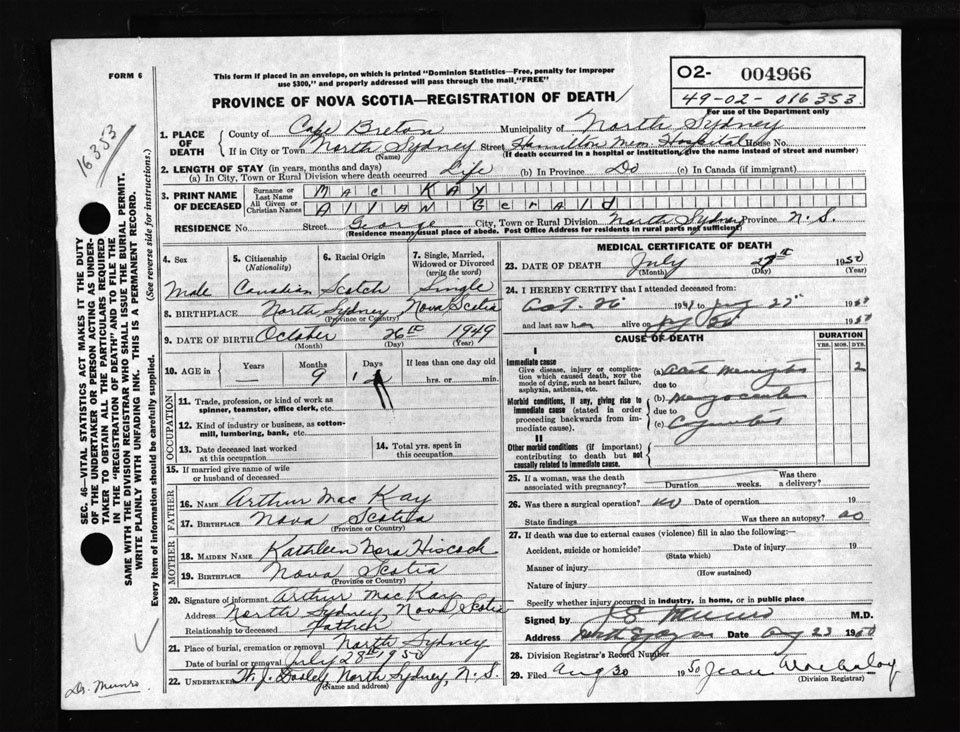 FORM 6
This form if placed in an envelope, on which is printed "Dominion Statistics—Free, penalty for improper
use $300," and properly addressed will pass through the mail "FREE"
O2- 004966
49-02-016353
For use of the Department only
PROVINCE OF NOVA SCOTIA—REGISTRATION OF DEATH
16353
1. PLACE OF DEATH
County of Cape Breton Municipality of North Sydney
If in City or Town North Sydney Street Hamilton Mem Hospital House No.
(Name) (If death occurred in a hospital or institution, give the name instead of street and number)
2. LENGTH OF STAY (in years, months and days)
(a) In City, Town or Rural Division where death occurred Life (b) In Province Do (c) In Canada (if immigrant)
3. PRINT NAME OF DECEASED
Surname or Last Name Mac Kay
All Given or Christian Names Allan Gerald
RESIDENCE No. Street George City, Town or Rural Division North Sydney Province N.S.
(Residence means usual place of abode. Post Office Address for residents in rural parts not sufficient)
4. Sex Male
5. Citizenship (Nationality) Canadian
6. Racial Origin Scotch
7. Single, Married, Widowed or Divorced (write the word) Single
8. BIRTHPLACE North Sydney Nova Scotia
(Province or Country)
9. DATE OF BIRTH October 26th 1949
(Month) (Day) (Year)
10. AGE in Years — Months 9 Days 1 If less than one day old
hrs. or min.
OCCUPATION
11. Trade, profession, or kind of work as
spinner, teamster, office clerk, etc.
12. Kind of industry or business, as cotton-
mill, lumbering, bank, etc.
13. Date deceased last worked
at this occupation
14. Total yrs. spent in
this occupation
15. If married give name of wife
or husband of deceased
FATHER
16. NAME Arthur Mac Kay
17. BIRTHPLACE Nova Scotia
(Province or Country)
MOTHER
18. MAIDEN NAME Kathleen Nora Hiscock
19. BIRTHPLACE Nova Scotia
(Province or Country)
20. Signature of informant Arthur Mac Kay
Address North Sydney, Nova Scotia
Relationship to deceased Father
21. Place of burial, cremation or removal North Sydney
Date of burial or removal July 28th 1950
22. UNDERTAKER W. J. Dooley, North Sydney, N.S.
(Name and address)
MEDICAL CERTIFICATE OF DEATH
23. DATE OF DEATH July 27th 1950
(Month) (Day) (Year)
24. I HEREBY CERTIFY that I attended deceased from:
Oct. 26 194 to 19
and last saw h alive on 19
CAUSE OF DEATH
DURATION
YRS. MOS. DYS.
I
Immediate cause
Give disease, injury or complica-
tion which caused death, nor the
mode of dying, such as heart failure,
asphyxia, asthenia, etc.
(a) 2
due to
Morbid conditions, if any, giving rise to
immediate cause (stated in order
proceeding backwards from im-
mediate cause).
(b)
due to
(c)
II
Other morbid conditions (if important)
contributing to death but not
causally related to immediate cause.
25. If a woman, was the death
associated with pregnancy? Duration weeks. Was there
a delivery?
26. Was there a surgical operation? no Date of operation 19
State findings Was there an autopsy? no
27. If death was due to external causes (violence) fill in also the following:—
Accident, suicide or homicide? Date of injury 19
(State which)
Manner of injury
(How sustained)
Nature of injury
Specify whether injury occurred in industry, in home, or in public place
Signed by Munro M.D.
Address Date Aug 23 1950
28. Division Registrar's Record Number
29. Filed Aug 30 1950 Jean
(Division Registrar)
SEC. 46—VITAL STATISTICS ACT MAKES IT THE DUTY
OF THE UNDERTAKER OR PERSON ACTING AS UNDER-
TAKER TO OBTAIN ALL THE PARTICULARS REQUIRED
IN THE "REGISTRATION OF DEATH" AND TO FILE THE
SAME WITH THE DIVISION REGISTRAR WHO SHALL ISSUE THE BURIAL PERMIT.
WRITE PLAINLY WITH UNFADING INK. THIS IS A PERMANENT RECORD.
Every item of information should be carefully supplied. (See reverse side for instructions.)
Dr. Munro